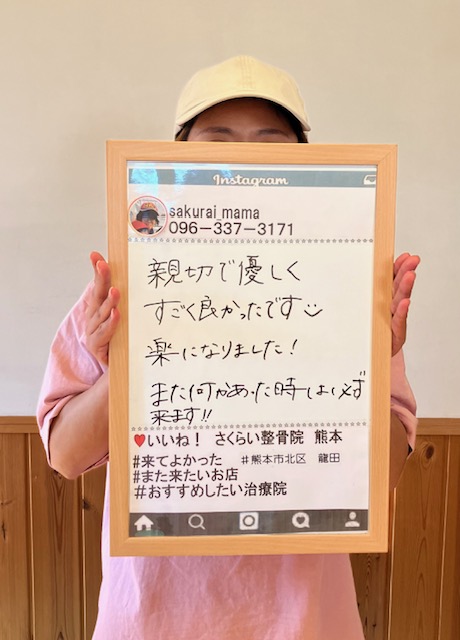 Instagram
sakurai_mama
096-337-3171
親切で優しく
すごく良かったです
楽になりました!
また何かあった時は必ず
来ます!!
♥いいね! さくらい整骨院 熊本
#来てよかった #熊本市北区 龍田
#また来たいお店
#おすすめしたい治療院